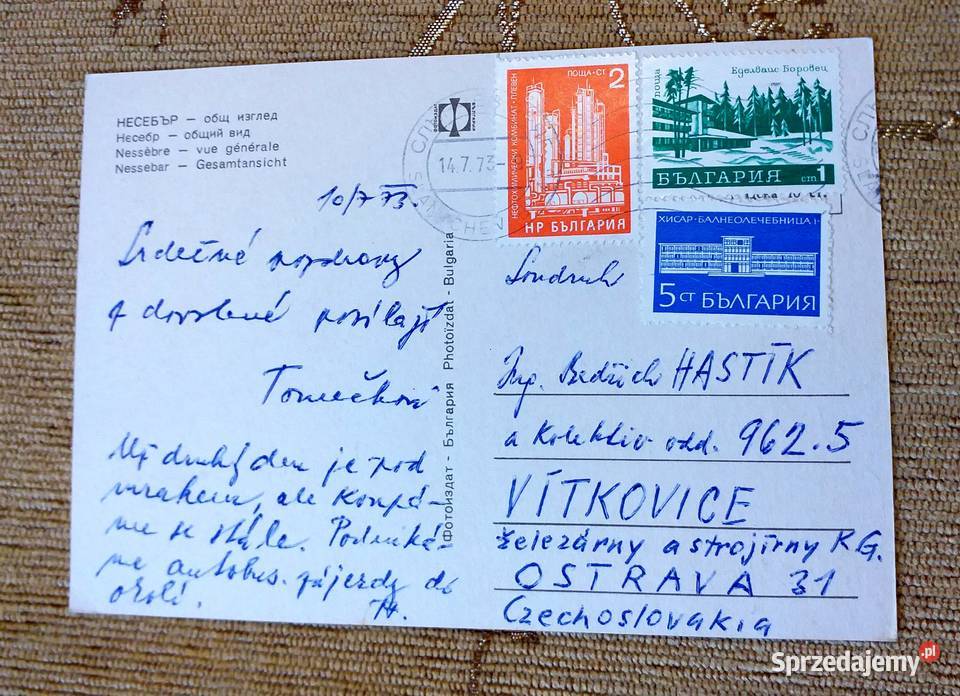 НЕСЕБЪР — общ изглед
Несебр — общий вид
Nessèbre — vue générale
Nessebar — Gesamtansicht
10/7 73.
Srdečné pozdravy
z dovolené posílají
Tomečkovi
Už druhý den je pod
mrakem, ale koupá-
me se stále. Podniká-
me autobus. zájezdy do
okolí.
Фотоиздат - България Photoïzdat - Bulgaria
14.7.73
ПОЩА·СТ 2
НЕФТОХИМИЧЕСКИ КОМБИНАТ·ПЛЕВЕН
НР БЪЛГАРИЯ
поща
Еделвайс Боровец
БЪЛГАРИЯ ст 1
ХИСАР·БАЛНЕОЛЕЧЕБНИЦА
5 СТ БЪЛГАРИЯ
Soudruh
Ing. Bedřich HASTÍK
a kolektiv odd. 962.5
VÍTKOVICE
železárny a strojírny K.G.
OSTRAVA 31
Czechoslovakia
Sprzedajemy.pl